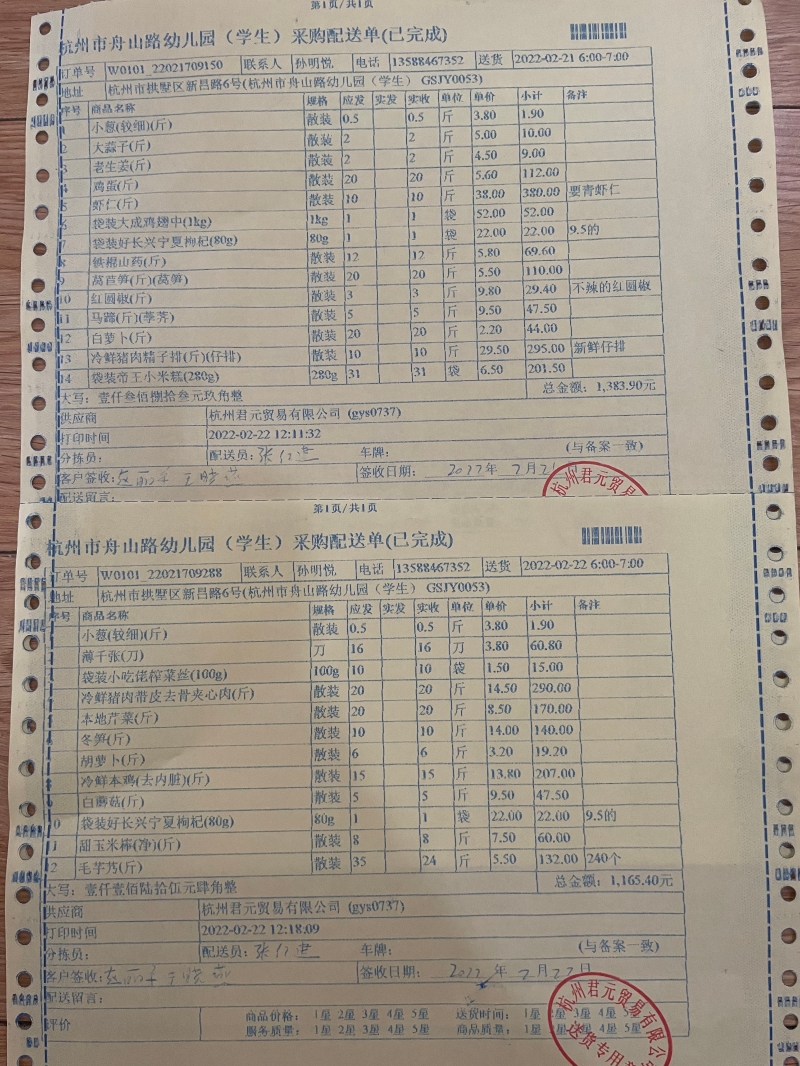 第1页/共1页
杭州市舟山路幼儿园（学生）采购配送单(已完成)
订单号 W0101_22021709150 联系人 孙明悦 电话 13588467352 送货 2022-02-21 6:00-7:00
地址 杭州市拱墅区新昌路6号(杭州市舟山路幼儿园（学生） GSJY0053)
序号 商品名称 规格 应发 实发 实收 单位 单价 小计 备注
小葱(较细)(斤) 散装 0.5 0.5 斤 3.80 1.90
2 大蒜子(斤) 散装 2 2 斤 5.00 10.00
3 老生姜(斤) 散装 2 2 斤 4.50 9.00
4 鸡蛋(斤) 散装 20 20 斤 5.60 112.00
5 虾仁(斤) 散装 10 10 斤 38.00 380.00 要青虾仁
6 袋装大成鸡翅中(1kg) 1kg 1 1 袋 52.00 52.00
7 袋装好长兴宁夏枸杞(80g) 80g 1 1 袋 22.00 22.00 9.5的
8 铁棍山药(斤) 散装 12 12 斤 5.80 69.60
9 莴苣笋(斤)(莴笋) 散装 20 20 斤 5.50 110.00
10 红圆椒(斤) 散装 3 3 斤 9.80 29.40 不辣的红圆椒
11 马蹄(斤)(荸荠) 散装 5 5 斤 9.50 47.50
12 白萝卜(斤) 散装 20 20 斤 2.20 44.00
13 冷鲜猪肉精子排(斤)(仔排) 散装 10 10 斤 29.50 295.00 新鲜仔排
14 袋装帝王小米糕(280g) 280g 31 31 袋 6.50 201.50
大写：壹仟叁佰捌拾叁元玖角整 总金额：1,383.90元
供应商 杭州君元贸易有限公司 (gys0737)
打印时间 2022-02-22 12:11:32
分拣员： 配送员： 车牌： (与备案一致)
客户签收： 签收日期： 2022年 2月21
配送留言：
杭州君元贸易
第1页/共1页
杭州市舟山路幼儿园（学生）采购配送单(已完成)
订单号 W0101_22021709288 联系人 孙明悦 电话 13588467352 送货 2022-02-22 6:00-7:00
地址 杭州市拱墅区新昌路6号(杭州市舟山路幼儿园（学生） GSJY0053)
序号 商品名称 规格 应发 实发 实收 单位 单价 小计 备注
小葱(较细)(斤) 散装 0.5 0.5 斤 3.80 1.90
薄千张(刀) 刀 16 16 刀 3.80 60.80
袋装小吃佬榨菜丝(100g) 100g 10 10 袋 1.50 15.00
冷鲜猪肉带皮去骨夹心肉(斤) 散装 20 20 斤 14.50 290.00
本地芹菜(斤) 散装 20 20 斤 8.50 170.00
冬笋(斤) 散装 10 10 斤 14.00 140.00
胡萝卜(斤) 散装 6 6 斤 3.20 19.20
冷鲜本鸡(去内脏)(斤) 散装 15 15 斤 13.80 207.00
白蘑菇(斤) 散装 5 5 斤 9.50 47.50
10 袋装好长兴宁夏枸杞(80g) 80g 1 1 袋 22.00 22.00 9.5的
1 甜玉米棒(净)(斤) 散装 8 8 斤 7.50 60.00
2 毛芋艿(斤) 散装 35 24 斤 5.50 132.00 240个
大写：壹仟壹佰陆拾伍元肆角整 总金额：1,165.40元
供应商 杭州君元贸易有限公司 (gys0737)
打印时间 2022-02-22 12:18:09
分拣员： 配送员： 车牌： (与备案一致)
客户签收： 签收日期： 2022年 2月22日
配送留言：
评价 商品价格： 1星 2星 3星 4星 5星 送货时间： 1星 2星 3星 4星 5星
服务质量： 1星 2星 3星 4星 5星 商品质量： 1星 2星 3星 4星 5星
杭州君元贸易有限公司
送货专用章